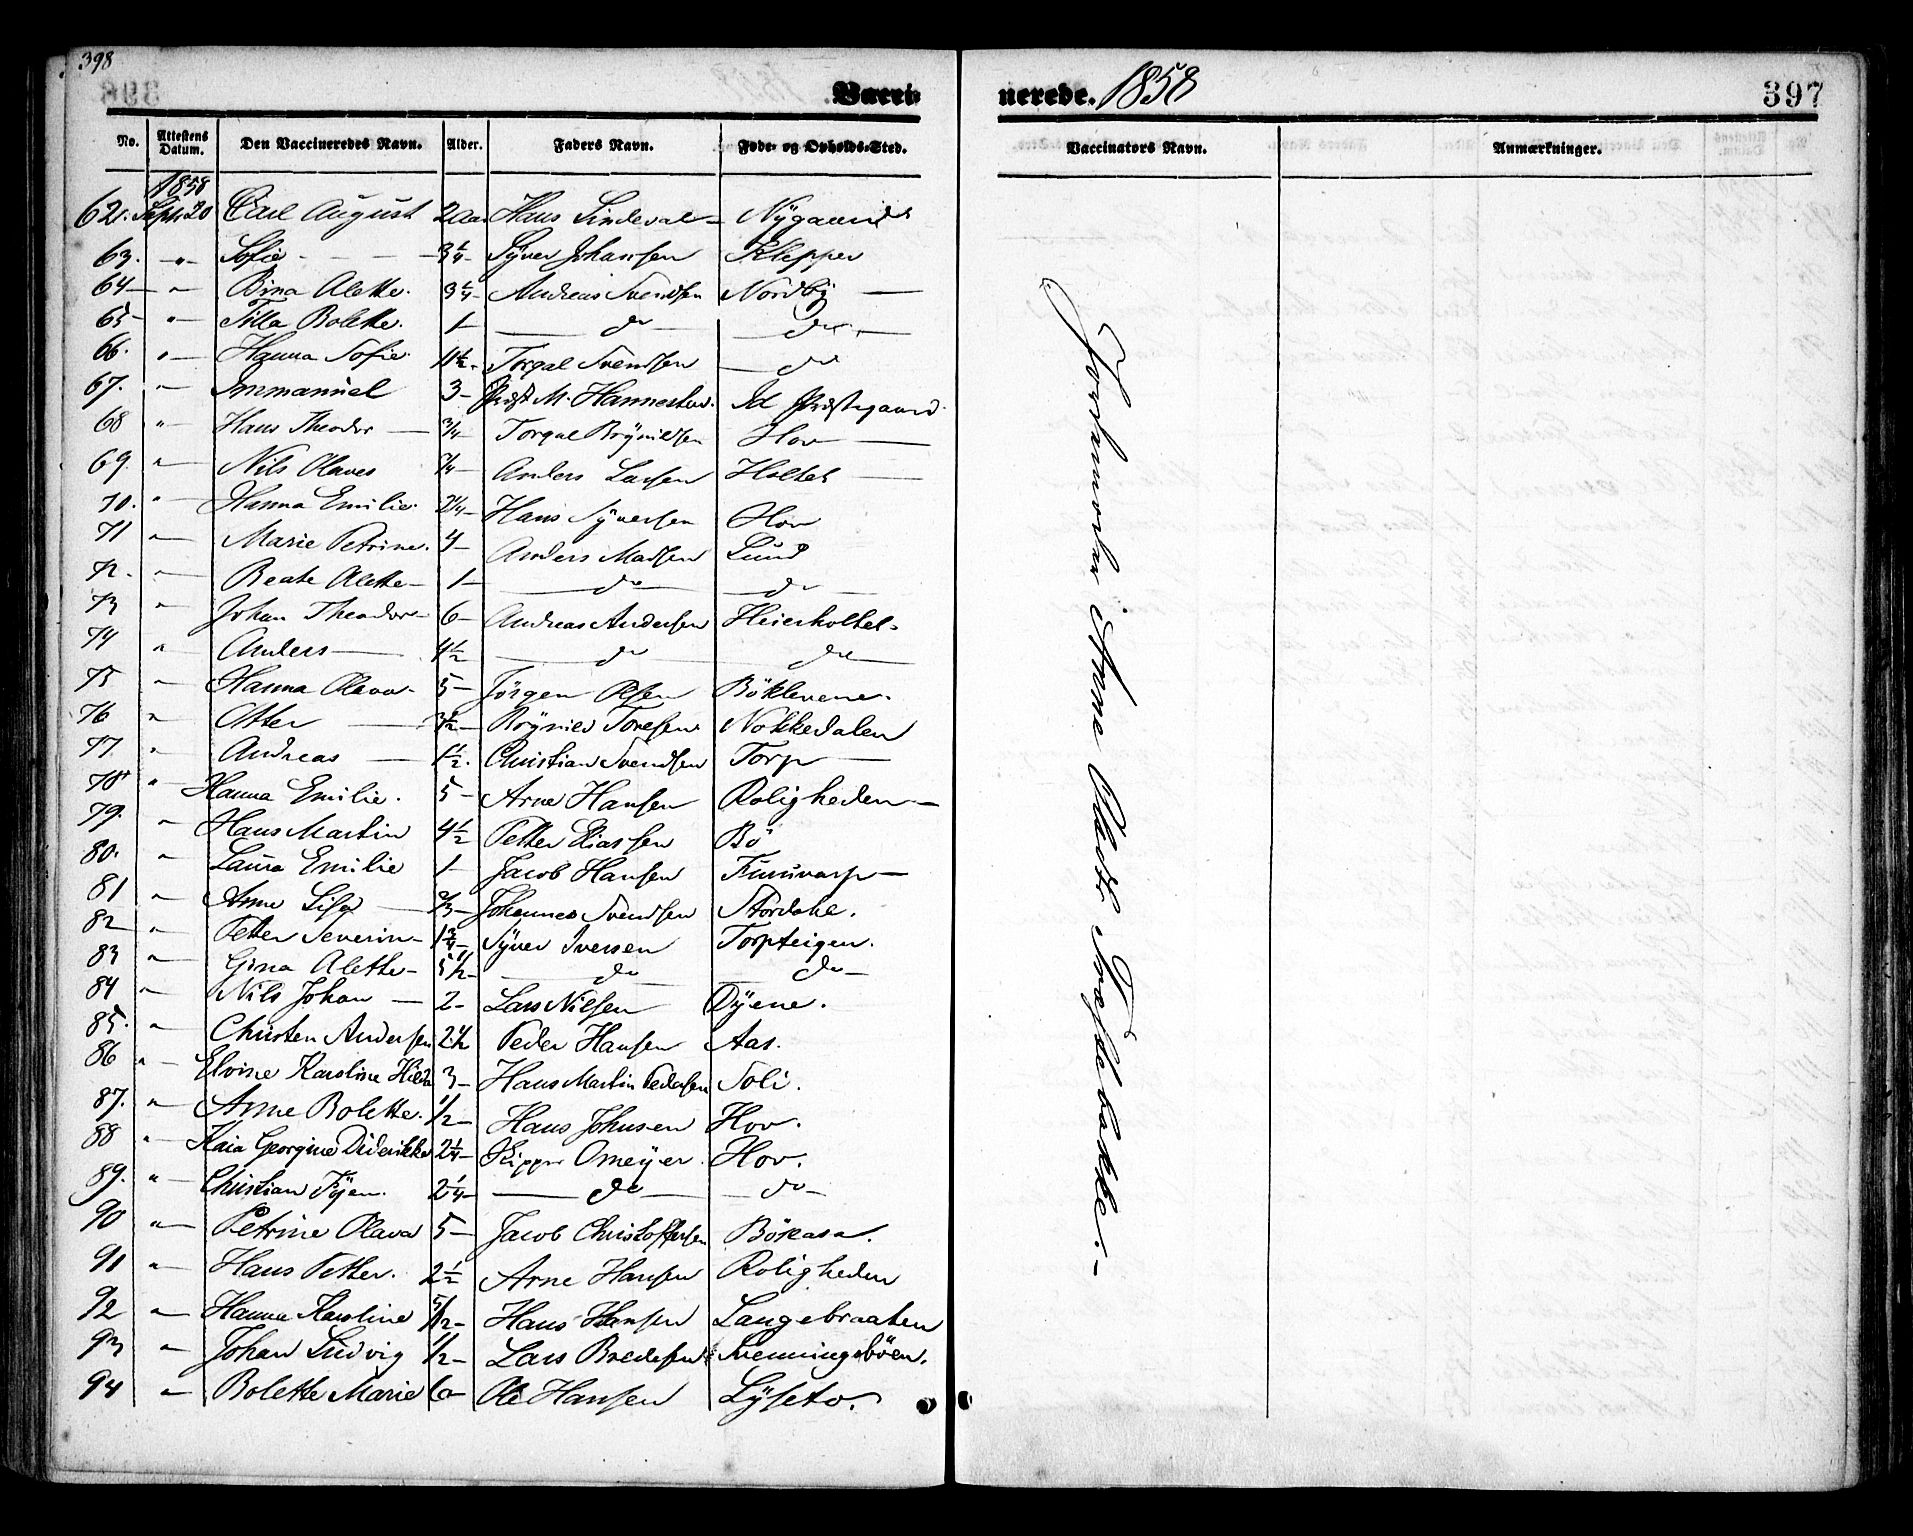 398
Vacci-
No. Attestens Datum. Den Vaccineredes Navn. Alder. Faders Navn. Føde- og Opholds-Sted.
1858
62. Sept. 20 Carl August 2 Aar Hans Nygaard
63. -"- Sofie - 3 1/4 - Syver Johansen Klepper
64 - " - Bina Alette. 3 1/4 - Andreas Svendsen Nordby -
65 - " - Tilla Bolette. 1 - do - do -
66. " - Hanna Sofie 11 1/2 - Torgal Svendsen - do
67. " - Immanuel 3 - Præst M. Id Præstegaard.
68 " - Hans Theodor - 3/4 - Torgal Brynildsen Hov -
69. " - Nils Olaves 3/4 - Anders Larsen Holtet -
70. " - Hanna Emilie. 2 1/4 - Hans Syversen Hov
71 " - Marie Petrine. 4 - Anders Madsen Lund
72. " - Beate Alette - 1 - do - do -
73 " - Johan Theodor - 6 - Andreas Andersen Heierholtet -
74 " Anders - 4 1/2 - do - do -
75 " - Hanna Olava - 5 - Jörgen Olsen Böklevene.
76 " - Otter - 3 1/2 - Brynild Toresen Nokkedalen
77. " - Andreas - 1 1/2. Christian Svendsen Torp -
78 " - Hanna Emilie. 5 - Arne Hansen Roligheden -
79. " - Hans Martin 4 1/2 Petter Eliassen Bö
80. " - Laura Emilie 1 - Jacob Hansen -
81 " - Anne Lisa - 2/3 - Johannes Svendsen
82 " - Petter Severin - 1 3/4 - Syver Iversen Torpteigen.
83 " - Gina Alette - 5 1/2 - do - do -
84 " - Nils Johan - 2 - Lars Nilsen Dyene.
85. " - Christen Andersen 2 1/2 Peder Hansen Aas.
86 " - Elvine Karoline 3 - Hans Martin Pedersen Soli.
87. " - Anne Bolette. 1/2 - Hans Johnsen Hov.
88 " - Kaia Georgine Diderikke 2 1/4 - Skipper Omeyer. Hov.
89. " - Christian Fyen. 2 1/4 - do - - do -
90 " - Petrine Olava 5 - Jacob Christoffersen Bökasa.
91 " - Hans Petter. 2 1/2 Arne Hansen Roligheden
92 " - Hanna Karoline 5/12 - Hans Hansen Langebraaten
93 " - Johan Ludvig 1/2 - Lars Bredesen Svenningsböen.
94 " - Bolette Marie 6 - Ole Hansen Lyseto.
nerede. 1858
397
Vaccinators Navn. Anmærkninger.
Jordemoder Anne Træslebakke. -